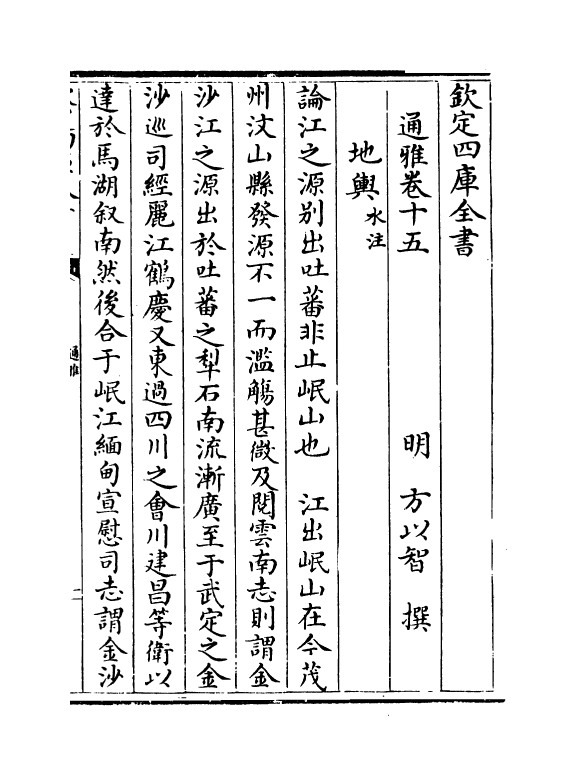 欽定四庫全書
通雅卷十五
明 方以智 撰
地輿水注
論江之源别出吐蕃非止岷山也 江出岷山在今茂
州汶山縣發源不一而濫觴甚微及閱雲南志則謂金
沙江之源出於吐蕃之犁石南流漸廣至于武定之金
沙巡司經麗江鶴慶又東過四川之會川建昌等衛以
達於馬湖叙南然後合于岷江緬甸宣慰司志謂金沙
通雅